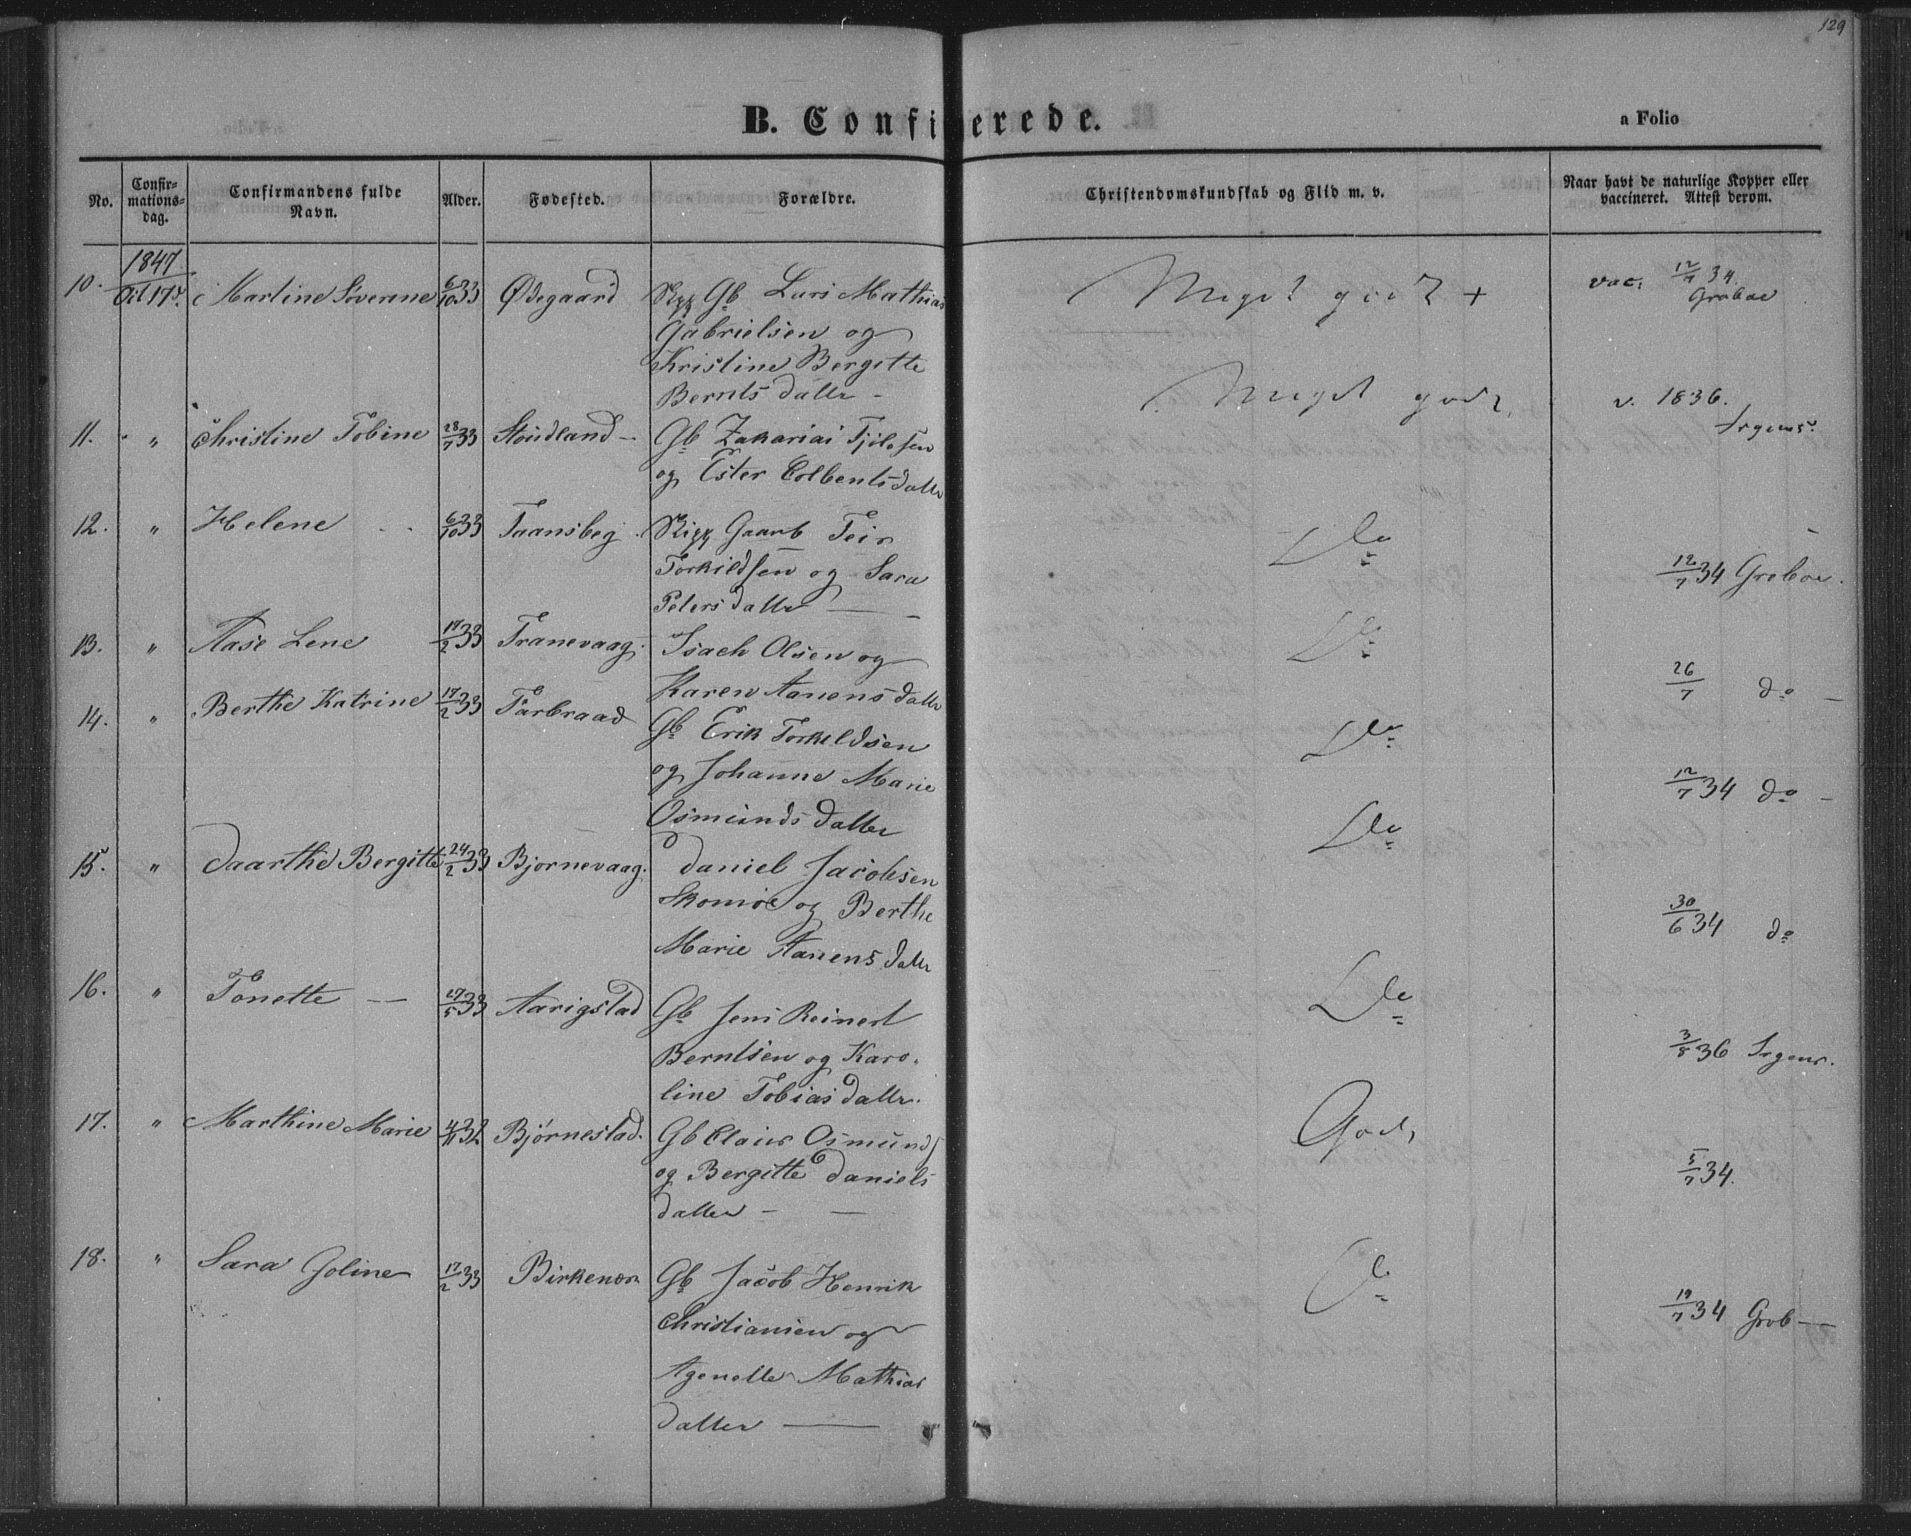 129
B. Confirmerede.
a Folio
No.
Confir-
mations-
dag.
Confirmandens fulde
Navn.
Alder.
Fødested.
Forældre.
Christendomskundskab og Flid m. v.
Naar havt de naturlige Kopper eller
vaccineret. Attest derom.
1847
10. Martine Soverine 6/10 33 Ødegaard Gb Lars Mathias
Gabrielsen og
Kristine Bergitte
Bernts datter -
Meget godt +
vac. 12/7 34.
Groboe
11. " Christine Tobine 28/7 33 Gb Zakarias
og Ester datter
Meget godt,
v. 1836.
12. " Helene 6/10 33 Gaarb Teis
Torkildsen og Sara
Peters datter
Do
12/7 34 Groboe.
13. " Aase Lene 17/2 33 Tranevaag Isach Olsen og
Karen Aanens datter
Do
26/7 do
14. " Berthe Katrine 17/2 33 Farbraad Gb Erik Torkildsen
og Johanne Marie
Osmunds datter
Do
12/7 34 do
15. " Daarthe Bergitte 24/2 33 Bjornevaag. Daniel Jacobsen
og Berthe
Marie Aanens datter
Do
30/6 34 do
16. " Tonette 27/5 33 Aarigstad Gb Jens Reinert
Berntsen og Karo-
line Tobias datter.
Do
3/8 36
17. " Marthine Marie 4/11 32 Bjørnestad. Gb Claus Osmunds
og Bergitte Daniels
datter -
Godt
5/7 34.
18. " Sara Goline 17/2 33 Birkenær Gb Jacob Henrik
Christiansen og
Agenette Mathias
datter
Do
19/7 34 Grob